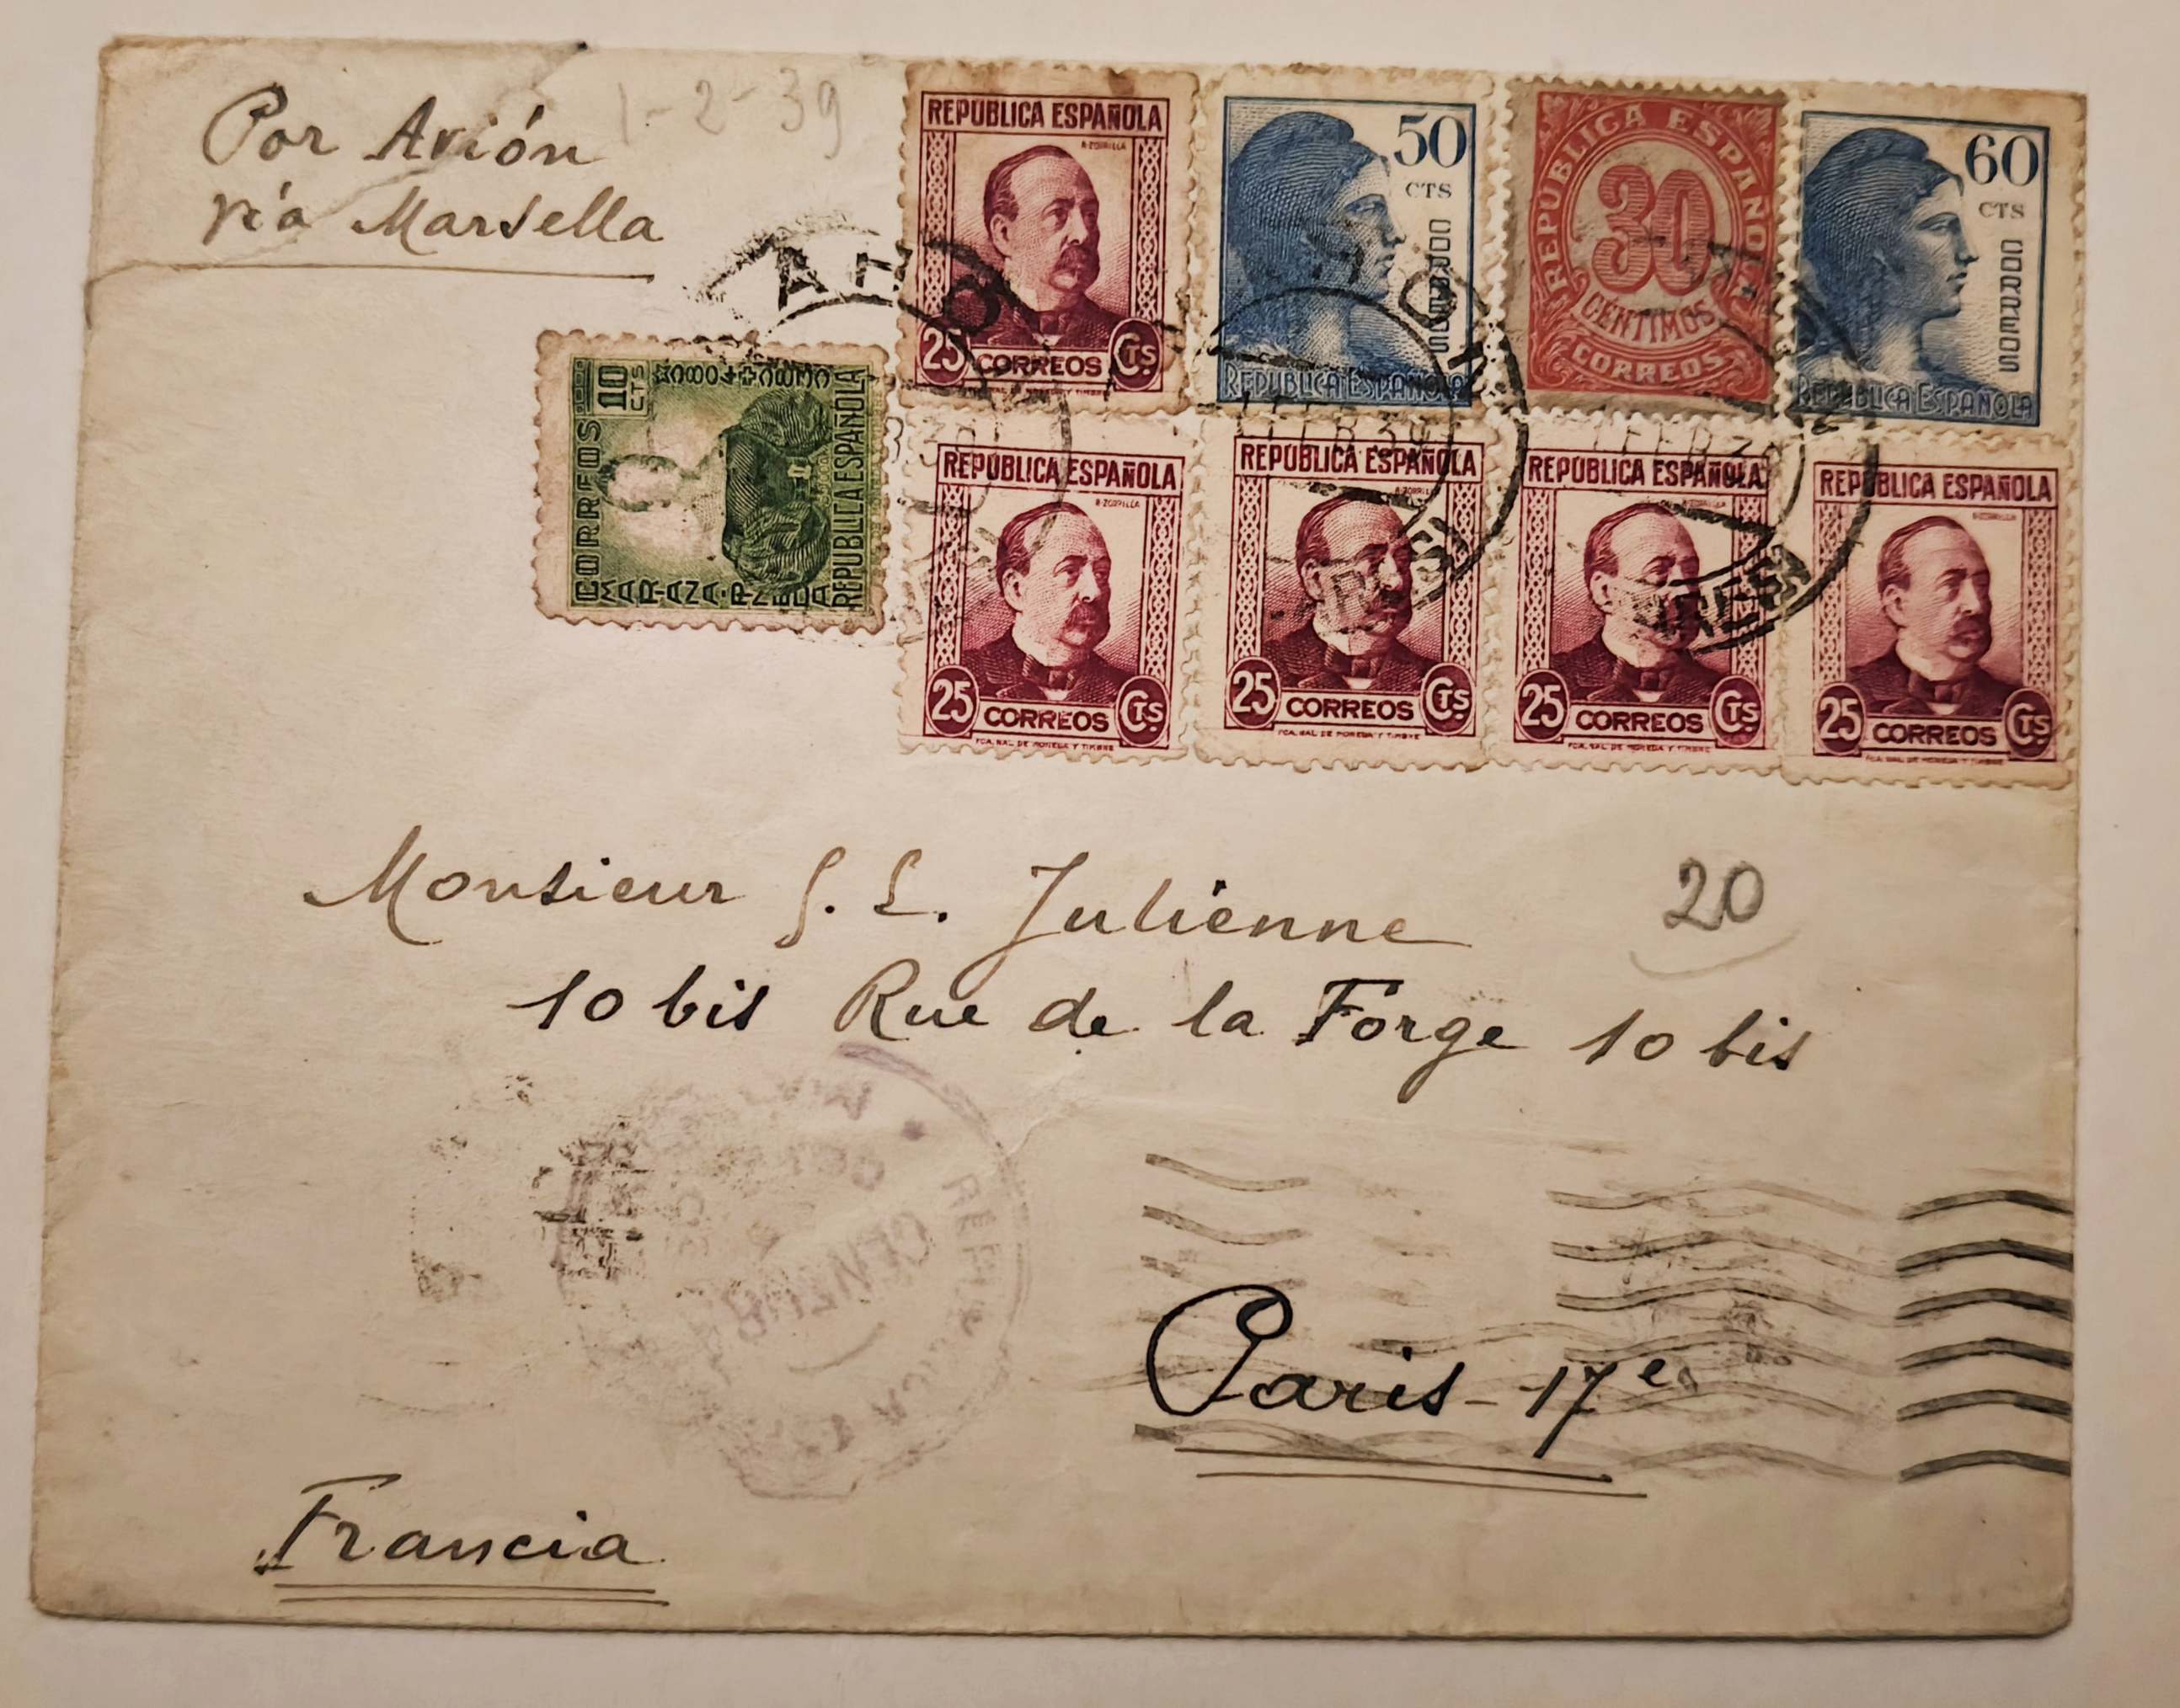 Por Avión
vía Marsella
1-2-39
REPUBLICA ESPAÑOLA
25 CORREOS Cts
50
CTS
CORREOS
REPUBLICA ESPAÑOLA
REPUBLICA ESPAÑOLA
30
CENTIMOS
CORREOS
60
CTS
CORREOS
REPUBLICA ESPAÑOLA
CORREOS 10 CTS
MARIANA PINEDA
REPUBLICA ESPAÑOLA
REPUBLICA ESPAÑOLA
25 CORREOS Cts
REPUBLICA ESPAÑOLA
25 CORREOS Cts
REPUBLICA ESPAÑOLA
25 CORREOS Cts
REPUBLICA ESPAÑOLA
25 CORREOS Cts
Monsieur S. L. Julienne
20
10 bis Rue de la Forge 10 bis
Paris-17e
Francia